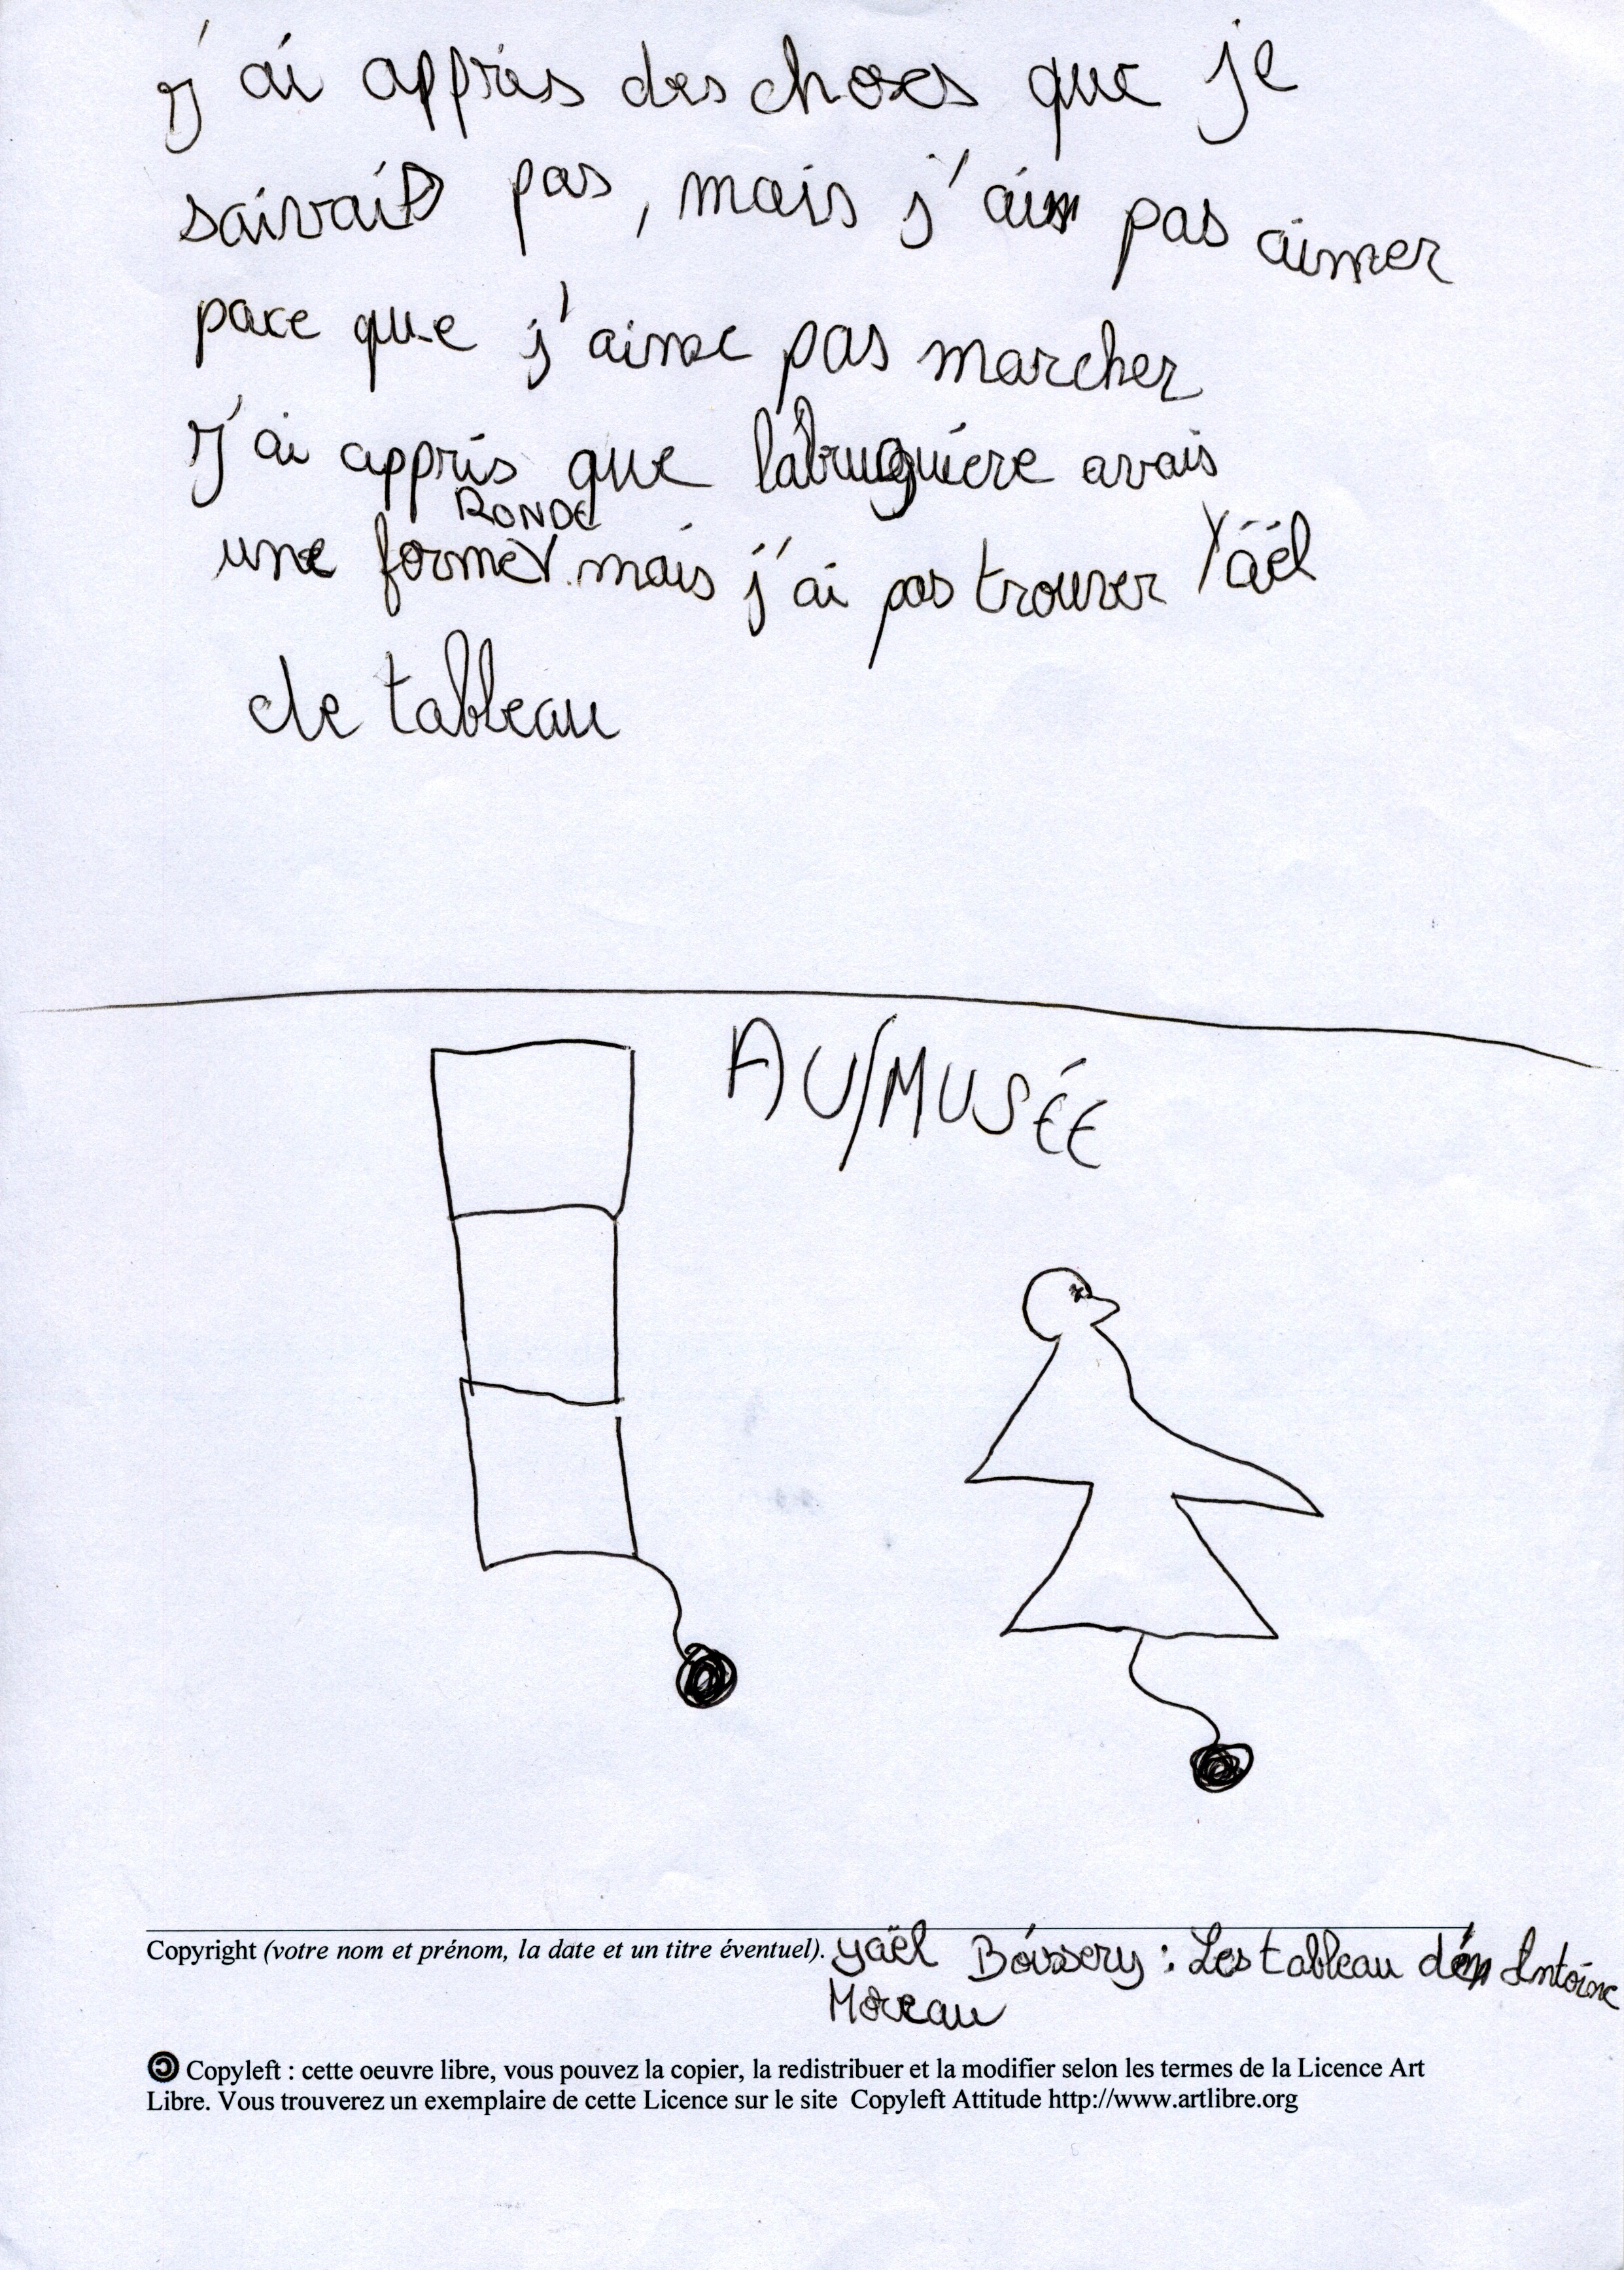 J'ai appris des choses que je
saivait pas, mais j'ai pas aimer
pace que j'aime pas marcher
J'ai appris que labruguière avais
RONDE
une forme. mais j'ai pas trouver Yäël
de tableau
AU/MUSÉE
Copyright (votre nom et prénom, la date et un titre éventuel). Yaël Boissery : Les tableau d' Antoine
Moreau
Copyleft : cette oeuvre libre, vous pouvez la copier, la redistribuer et la modifier selon les termes de la Licence Art
Libre. Vous trouverez un exemplaire de cette Licence sur le site Copyleft Attitude http://www.artlibre.org